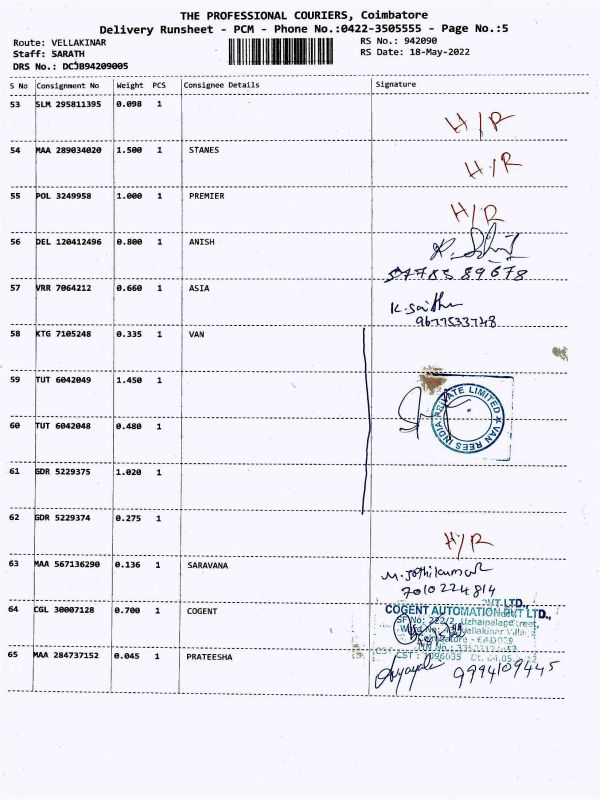 THE PROFESSIONAL COURIERS, Coimbatore
Delivery Runsheet - PCM - Phone No.:0422-3505555 - Page No.:5
Route: VELLAKINAR RS No.: 942090
Staff: SARATH RS Date: 18-May-2022
DRS No.: DCJB94209005
S No Consignment No Weight PCS Consignee Details Signature
53 SLM 295811395 0.098 1 H/R
54 MAA 289034020 1.500 1 STANES H/R
55 POL 3249958 1.000 1 PREMIER H/R
56 DEL 120412496 0.800 1 ANISH
89678
57 VRR 7064212 0.660 1 ASIA K. Saithu
9677533748
58 KTG 7105248 0.335 1 VAN
59 TUT 6042049 1.450 1
VAN REES INDIA PRIVATE LIMITED
60 TUT 6042048 0.480 1
61 GDR 5229375 1.020 1
62 GDR 5229374 0.275 1 H/R
63 MAA 567136290 0.136 1 SARAVANA M. Jothikumar
7010224814
64 CGL 30007128 0.700 1 COGENT COGENT AUTOMATION PVT LTD.,
SF No: 222/2, Uzhaipalar Street,
Vellakinar
65 MAA 284737152 0.045 1 PRATEESHA 9994109445